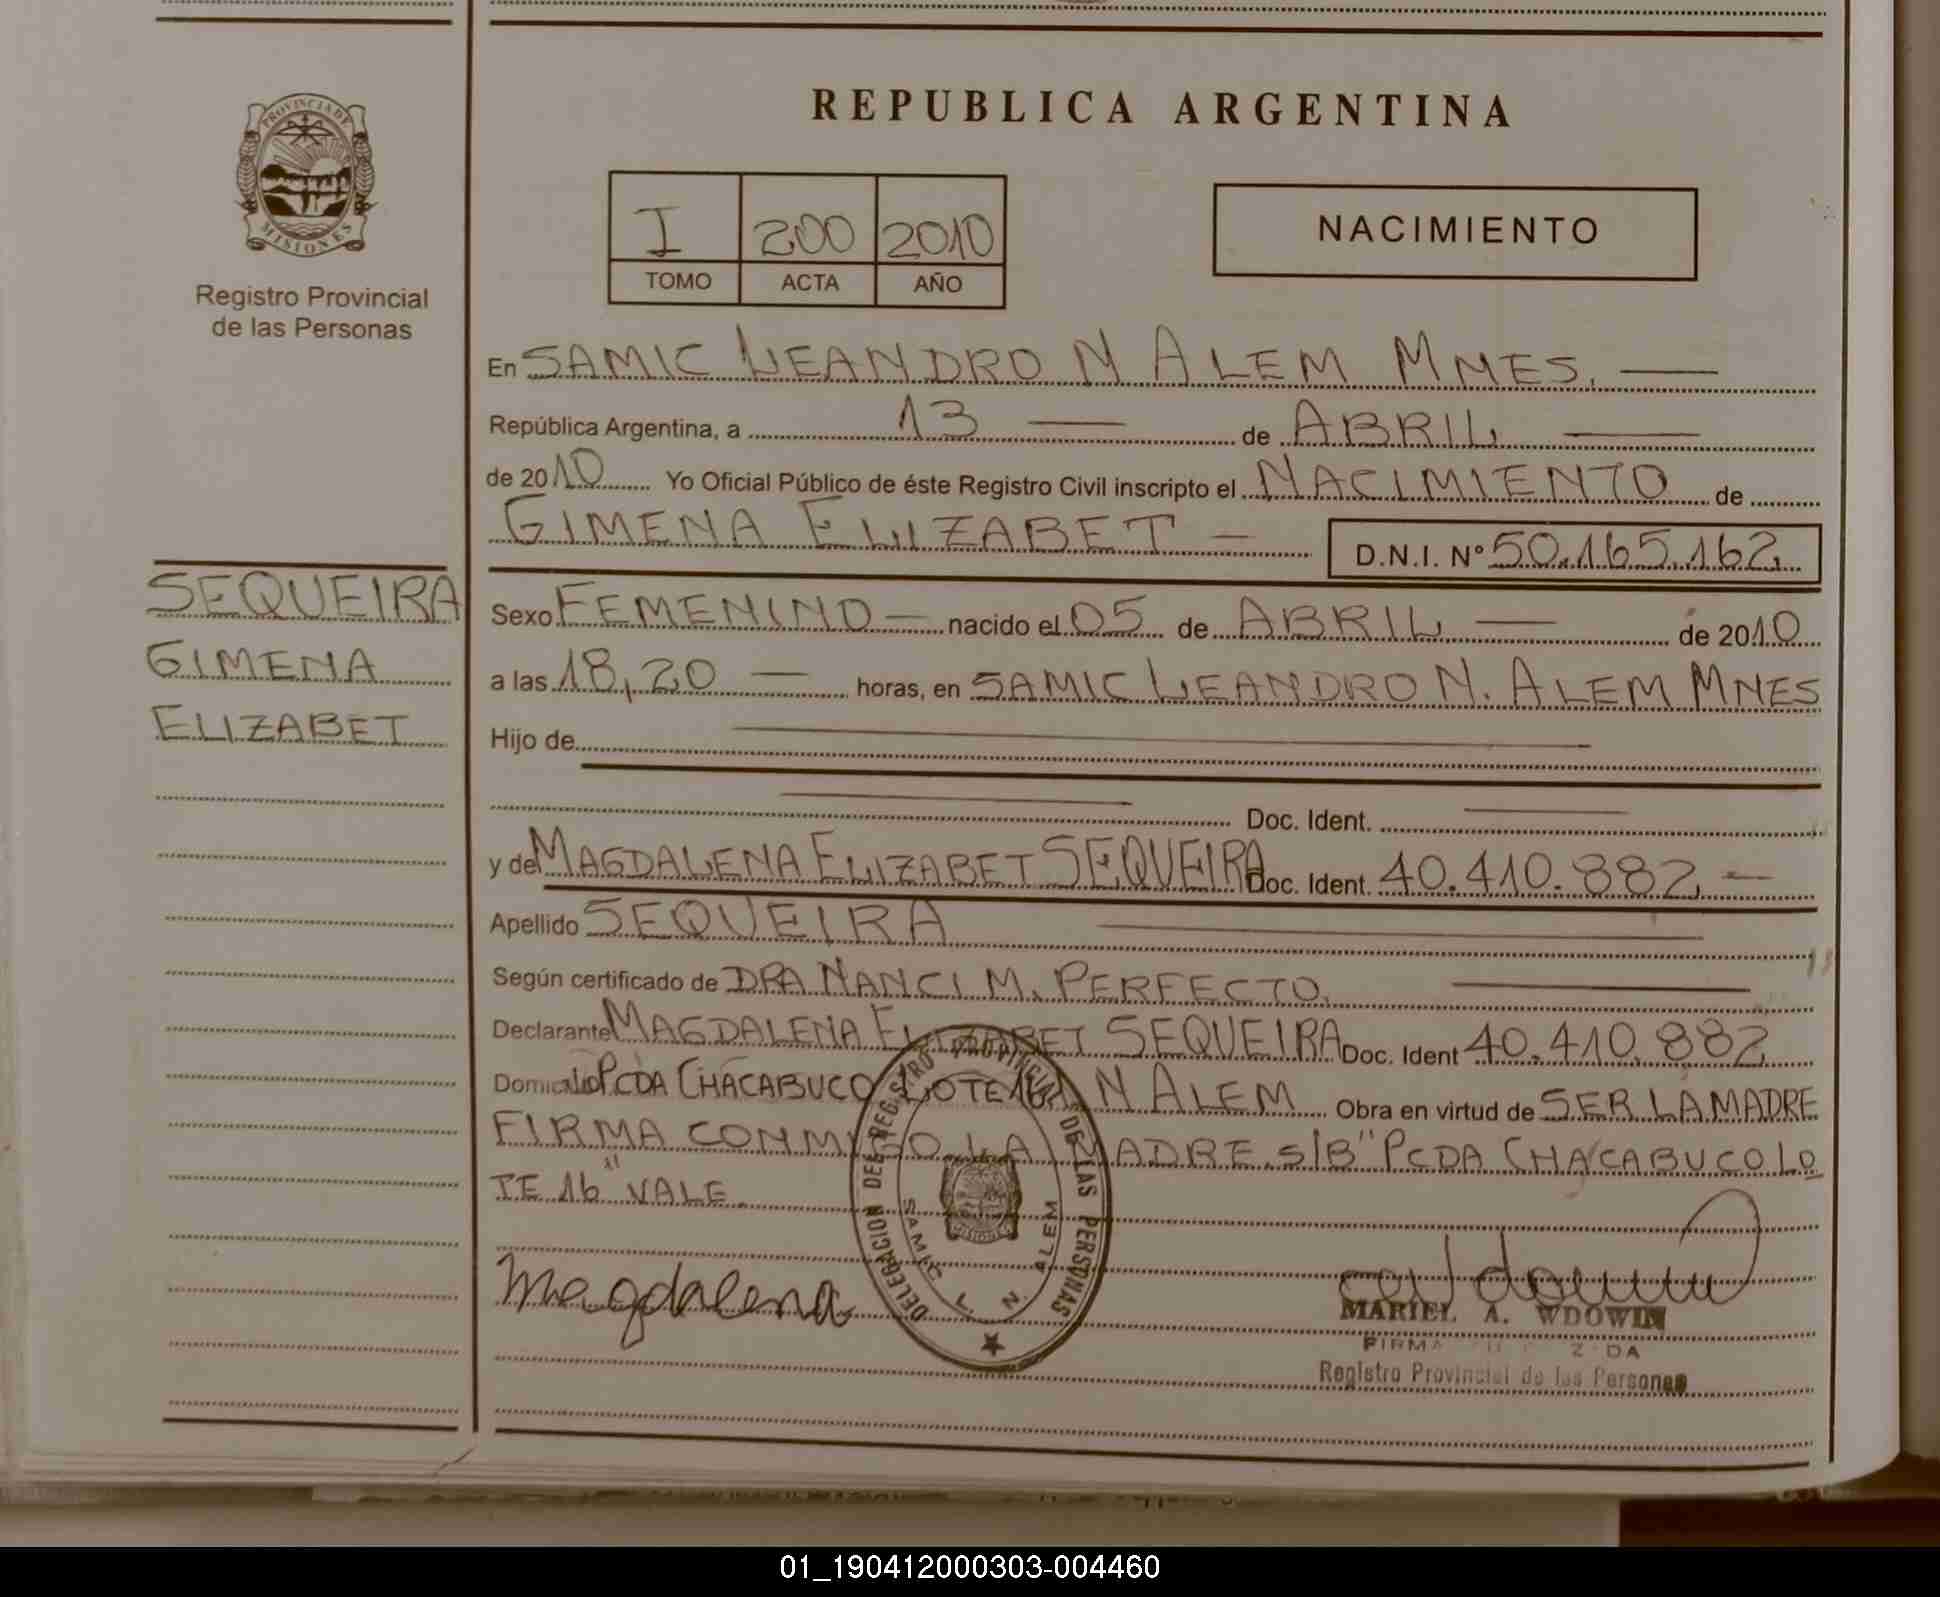 REPUBLICA ARGENTINA
PROVINCIA DE
MISIONES
Registro Provincial
de las Personas
I 200 2010
TOMO ACTA AÑO
NACIMIENTO
En SAMIC LEANDRO N ALEM MNES.
República Argentina, a 13 de ABRIL
de 2010 Yo Oficial Público de éste Registro Civil inscripto el NACIMIENTO de
GIMENA ELIZABET D.N.I. Nº 50.165.162.
SEQUEIRA
GIMENA
ELIZABET
Sexo FEMENINO nacido el 05 de ABRIL de 2010
a las 18,20 horas, en SAMIC LEANDRO N. ALEM MNES
Hijo de
Doc. Ident.
y de MAGDALENA ELIZABET SEQUEIRA Doc. Ident. 40.410.882.
Apellido SEQUEIRA
Según certificado de DRA NANCI M. PERFECTO.
Declarante MAGDALENA ELIZABET SEQUEIRA Doc. Ident 40.410.882
Domicilio PCDA CHACABUCO LOTE 16 L N ALEM Obra en virtud de SER LA MADRE
FIRMA CONMIGO LA MADRE. S/B "PCDA CHACABUCO LO
TE 16" VALE.
Magdalena
DELEGACION DEL REGISTRO PROVINCIAL DE LAS PERSONAS
SAMIC L. N. ALEM
MARIEL A. WDOWIN
Registro Provincial de las Personas
01_190412000303-004460